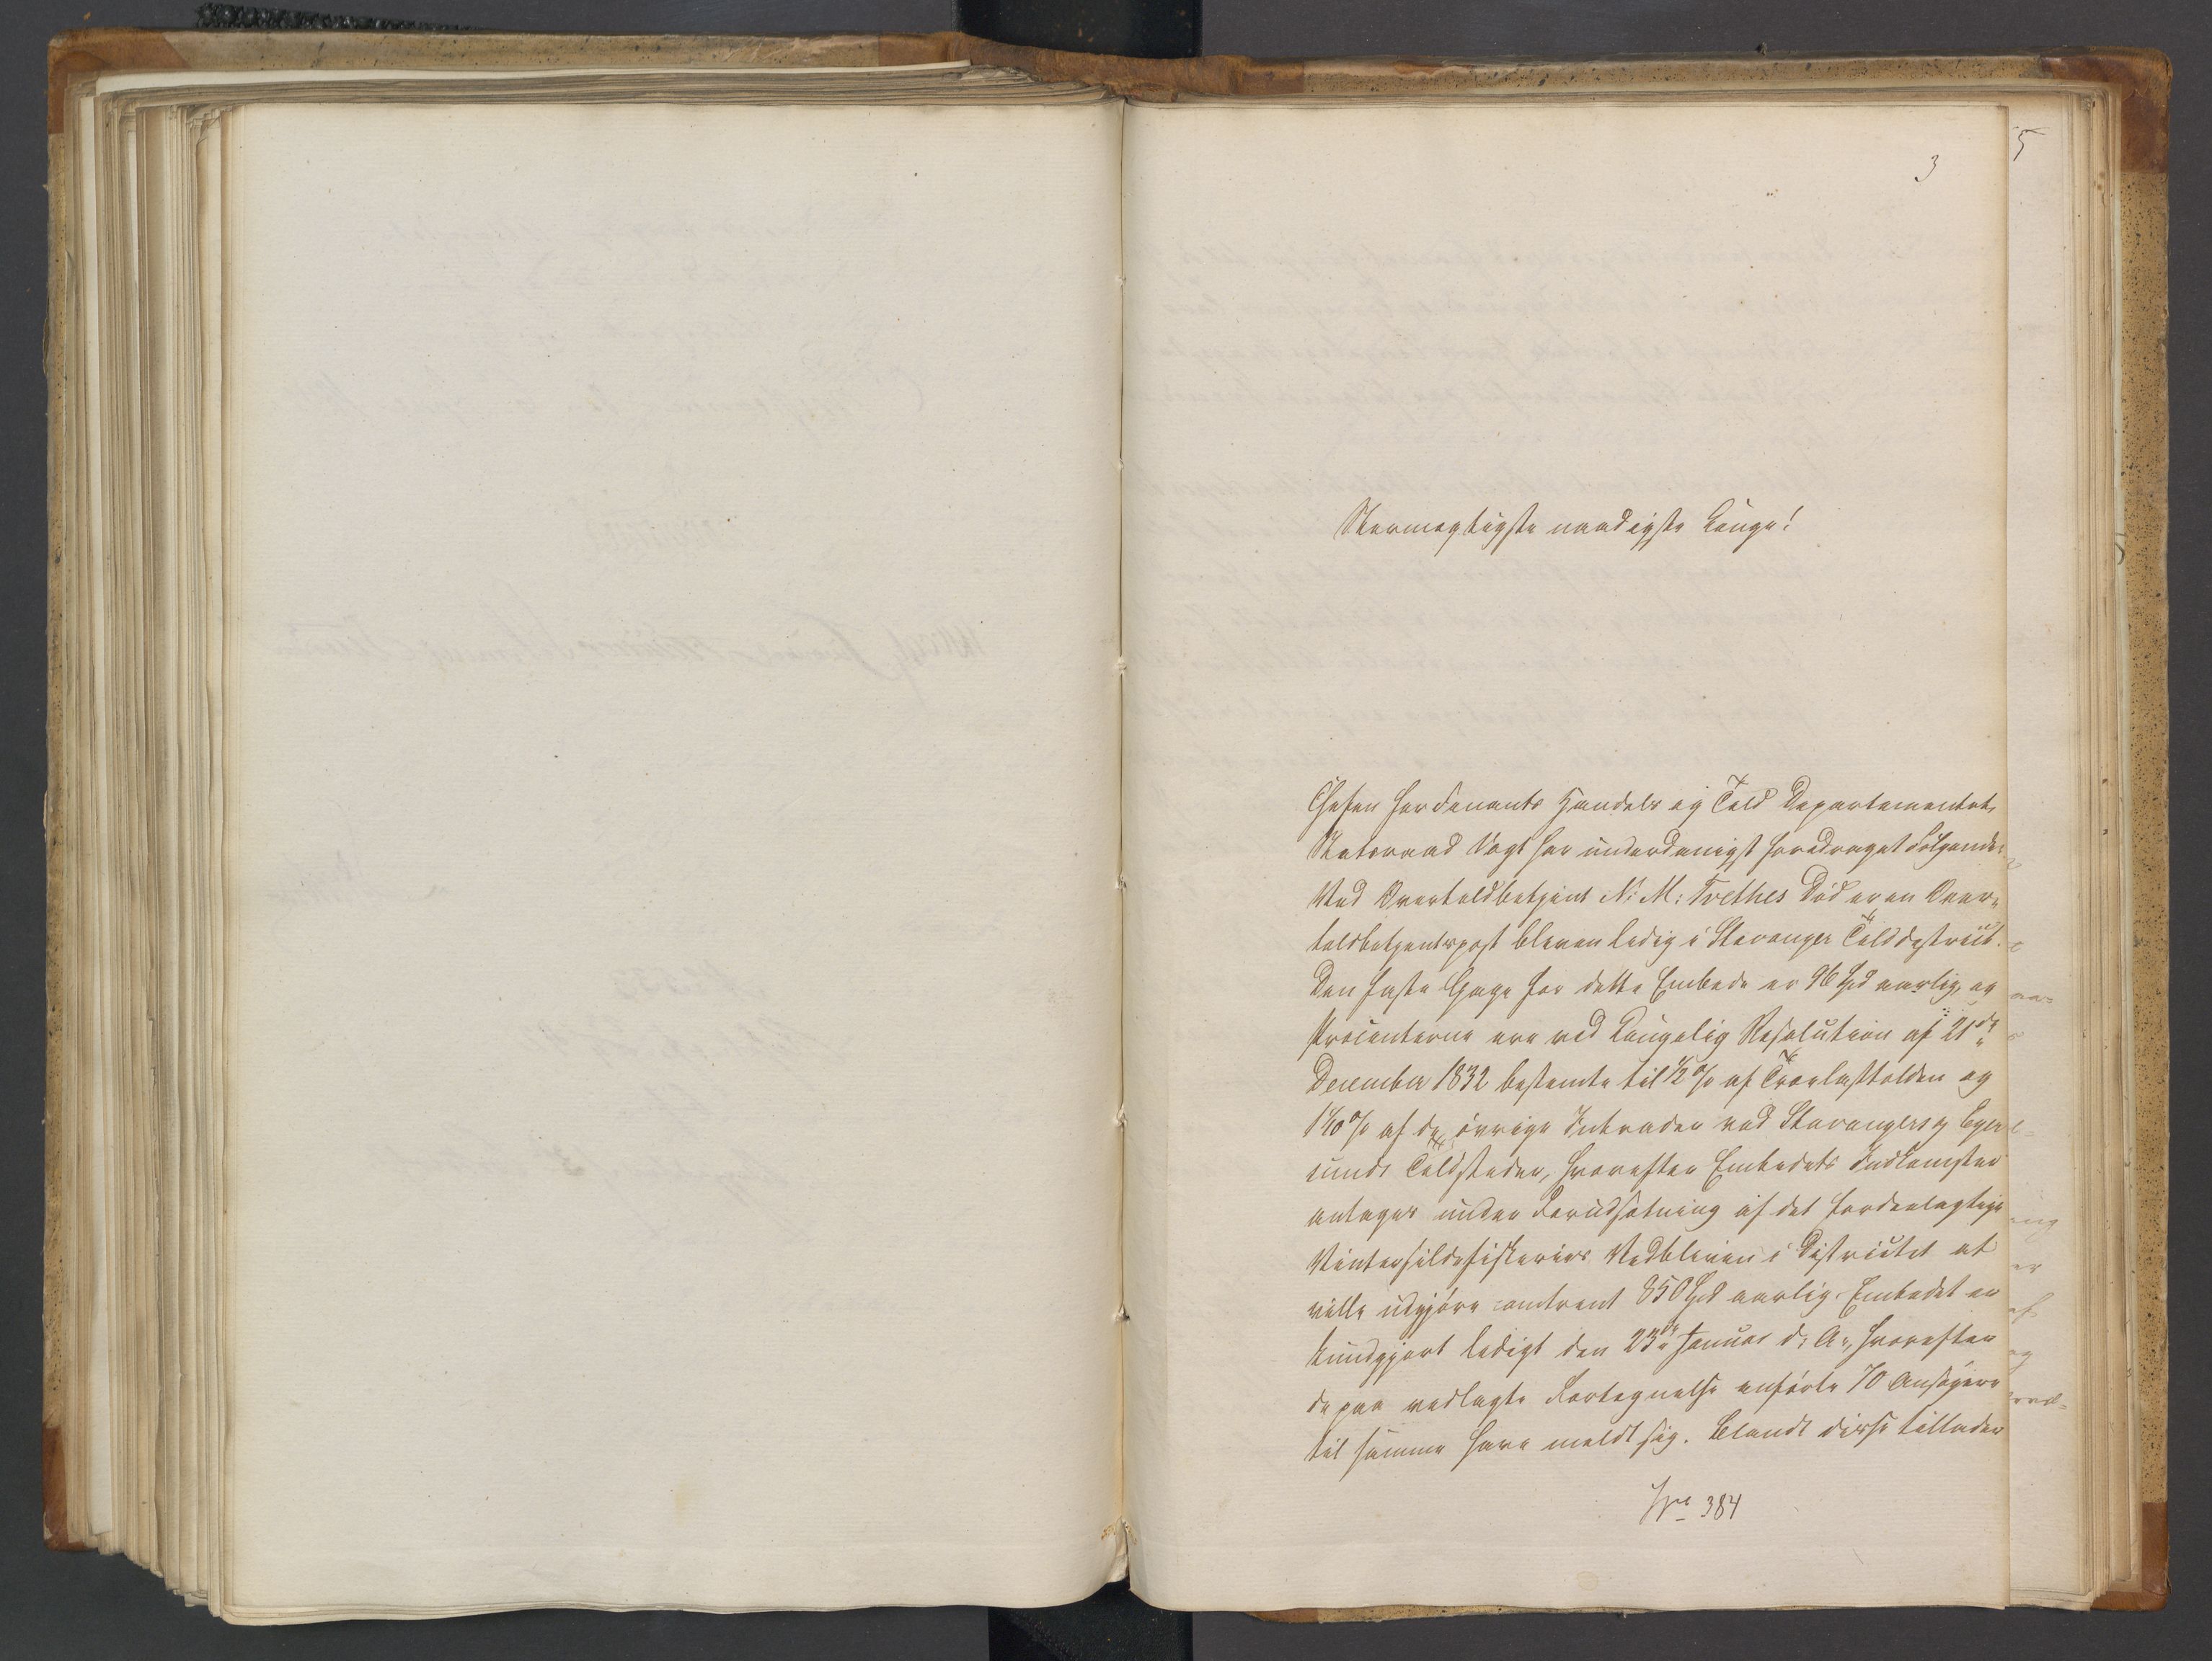 5
3
Stormægtigste naadigste Konge!
Chefen for Finants Handels og Told Departementet,
Statsraad Vogt har underdanigst foredraget Følgende:
Ved Overtoldbetjent N: M: Trethes Död er en Over-
toldbetjentspost bleven ledig i Stavanger Tolddistrict.
Den faste Gage for dette Embede er 96 Spd aarlig, og
Procenterne ere ved Kongelig Resolution af 21de
December 1832 bestemte til ½ % af Trælasttolden og
1 1/10 % af de øvrige Intrader ved Stavangers og Eger-
sunds Toldsteder, hvorefter Embedets Indkomster
antages under Forudsætning af det fordeelagtige
Vintersildefiskeries Vedbliven i Districtet at
ville udgjøre omtrent 850 Spd aarlig. Embedet er
kundgjort ledigt den 23de Januar d: A:, hvorefter
de paa vedlagte Fortegnelse anførte 70 Ansøgere
til samme have meldt sig. Blandt disse tillader
No 384